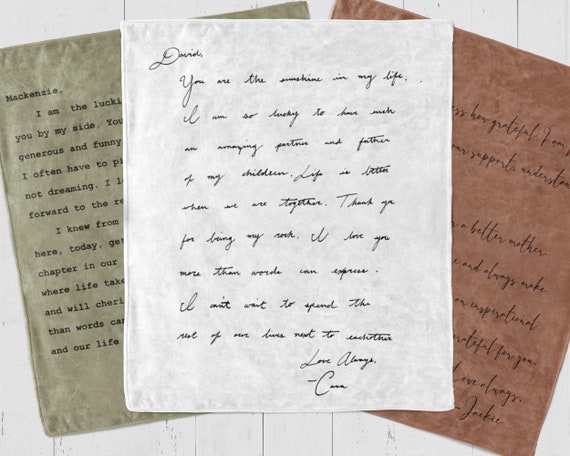 Mackenzie,
I am the lucki
you by my side. You
generous and funny
I often have to pi
not dreaming. I lo
forward to the re
I knew from
here, today, get
chapter in our
where life take
and will cheris
than words can
and our life
David,
You are the sunshine in my life. . .
I am so lucky to have such
an amazing partner and father
of my children. Life is better
when we are together. Thank yo
for being my rock. I love you
more than words can express.
I can't wait to spend the
rest of our lives next to eachother
Love Always,
-Cara
ess how grateful I am f
our support, understan
a better mother
e and always make
an inspirational
grateful for you.
Love always,
-Jackie